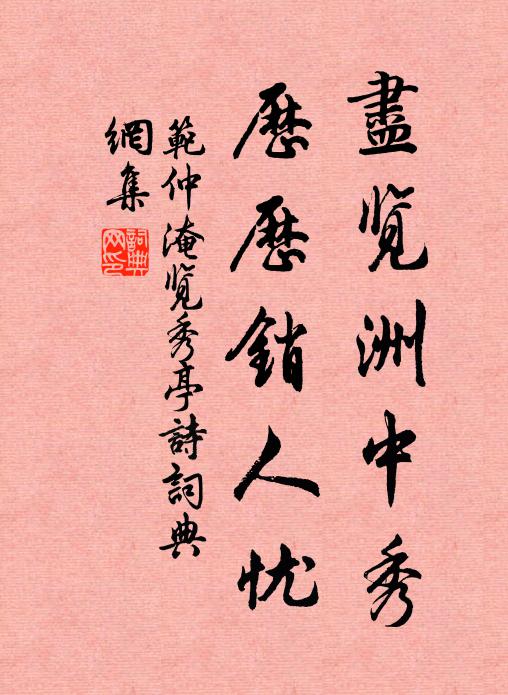 盡览洲中秀
歷歷銷人忧
範仲淹览秀亭詩詞典
網集
詞典網印